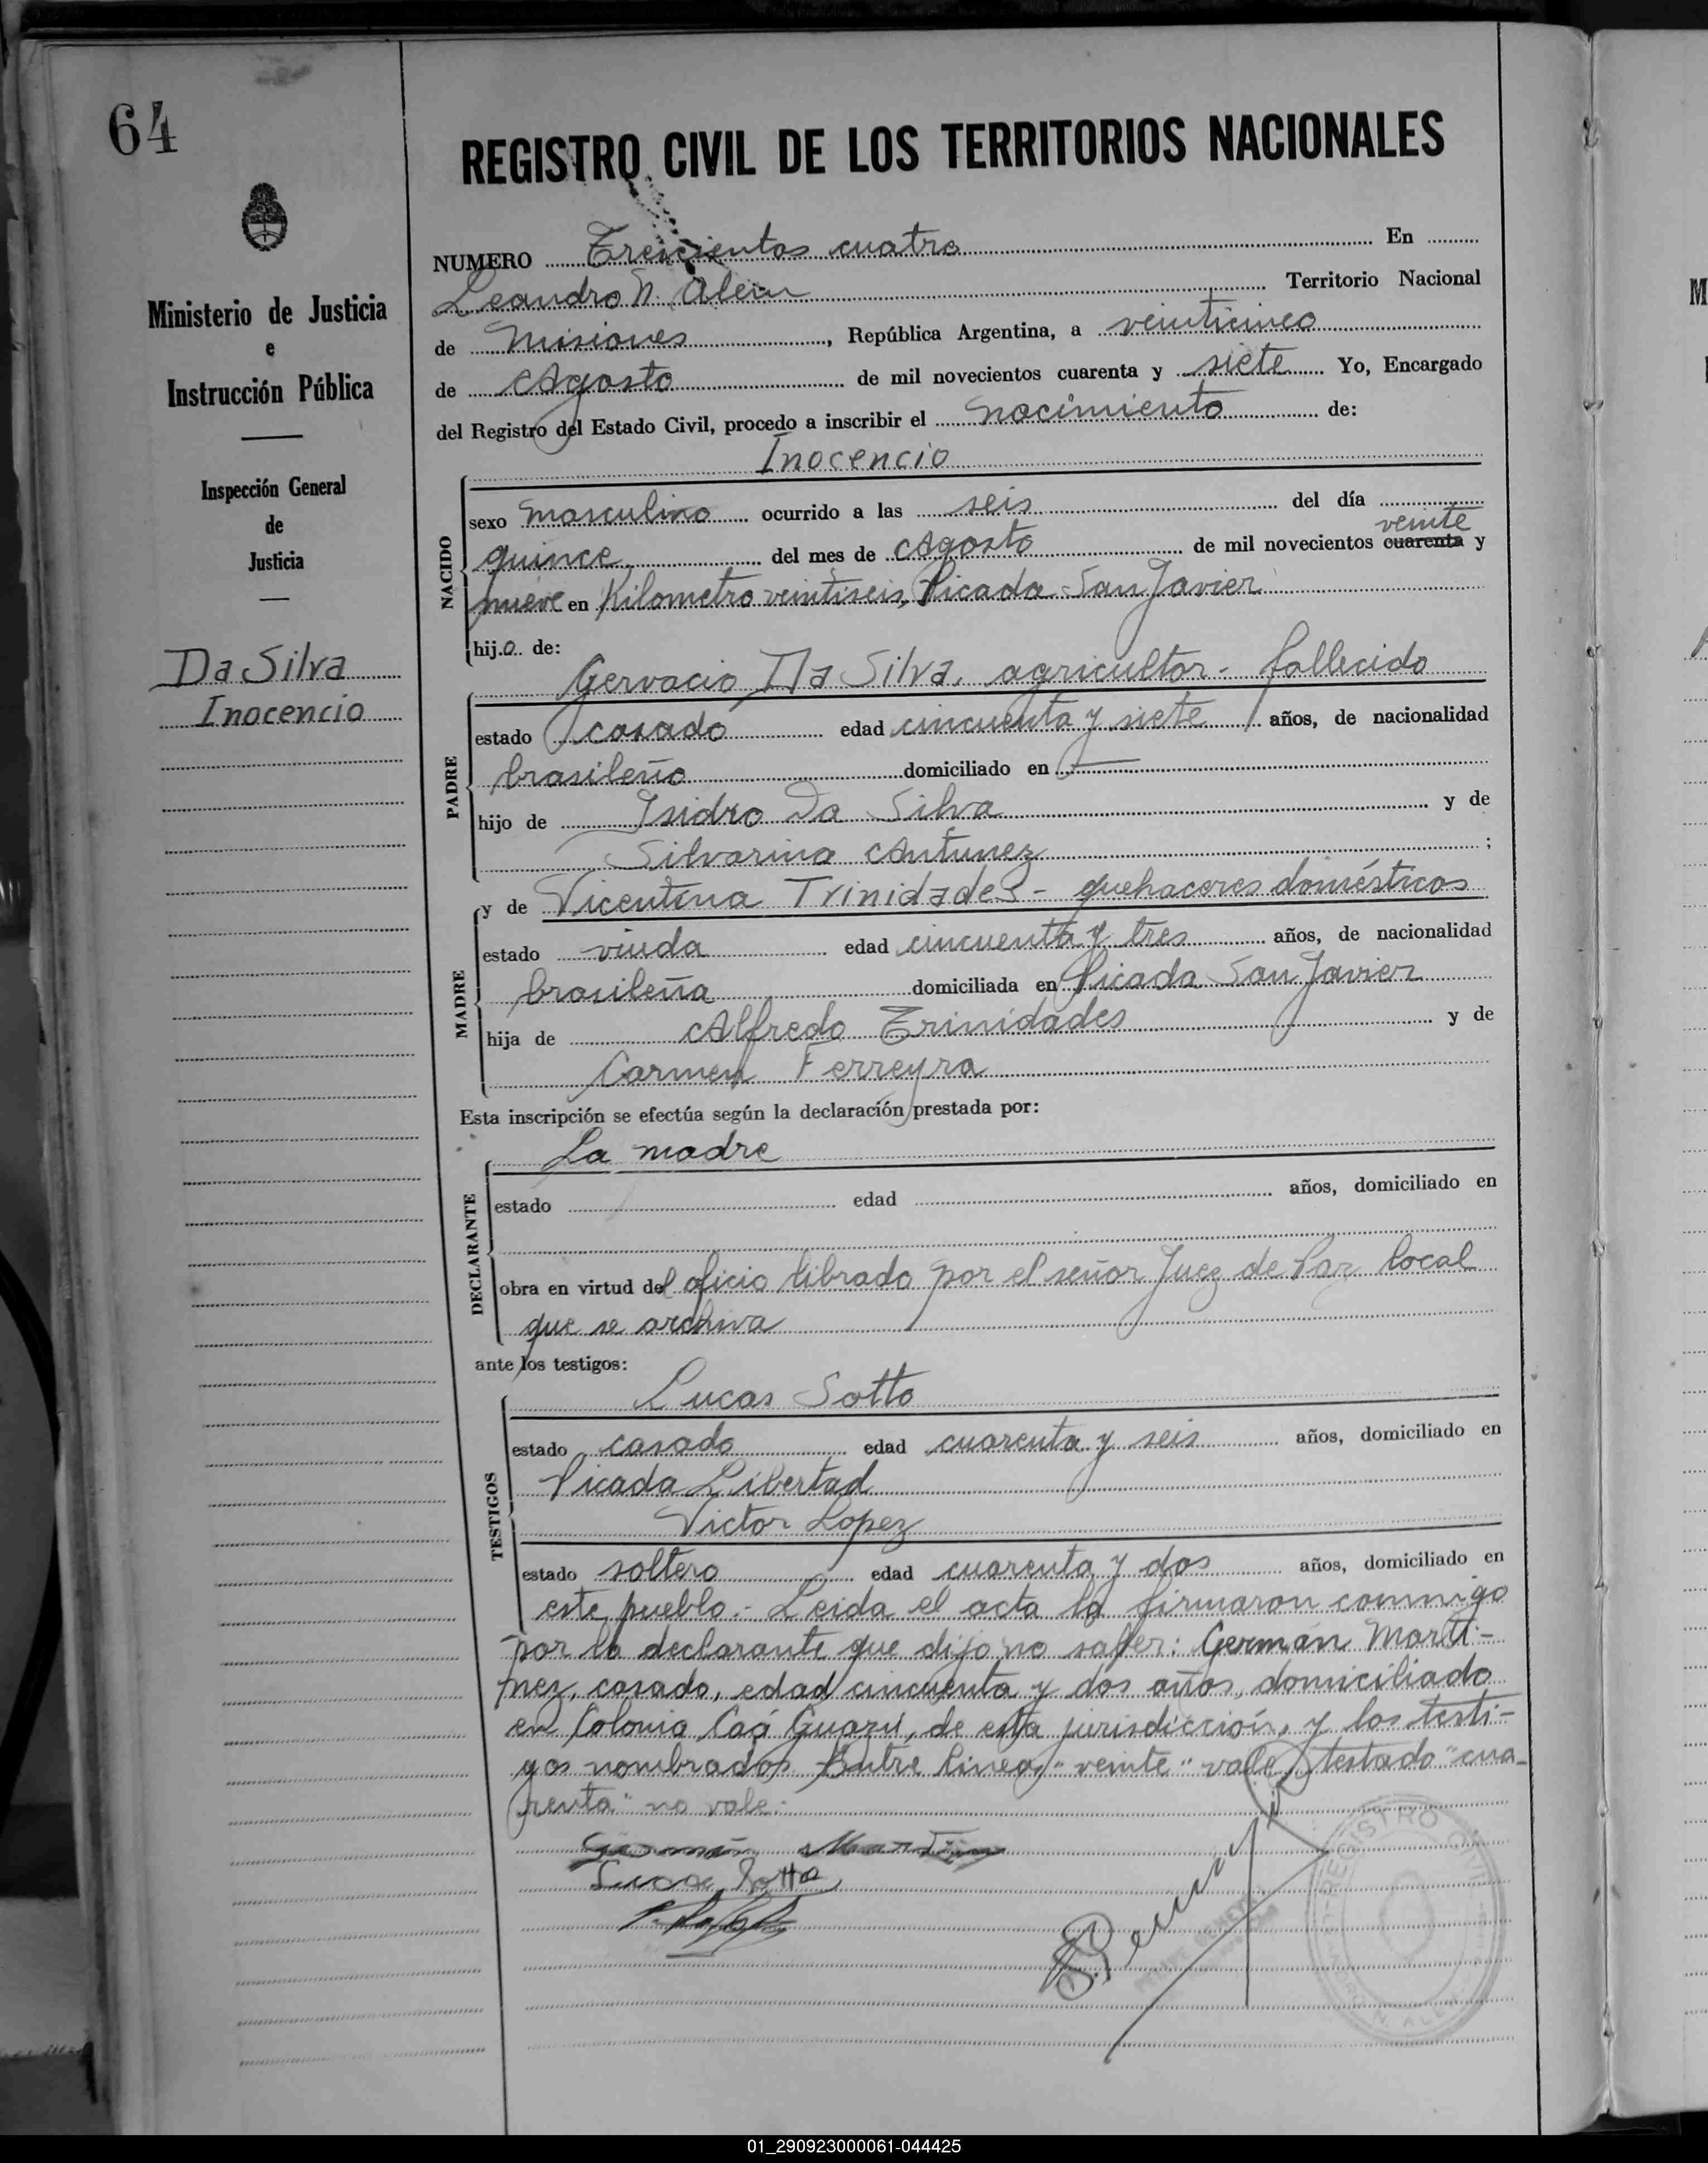 64
REGISTRO CIVIL DE LOS TERRITORIOS NACIONALES
Ministerio de Justicia
e
Instrucción Pública
Inspección General
de
Justicia
Da Silva
Inocencio
NUMERO Trescientos cuatro En
Leandro N. Alem Territorio Nacional
de Misiones, República Argentina, a veinticinco
de Agosto de mil novecientos cuarenta y siete Yo, Encargado
del Registro del Estado Civil, procedo a inscribir el nacimiento de:
Inocencio
NACIDO
sexo masculino ocurrido a las seis del día
veinte
quince del mes de Agosto de mil novecientos cuarenta y
nueve en Kilometro veintiseis, Picada San Javier
hijo de:
Gervacio Da Silva, agricultor - fallecido
PADRE
estado casado edad cincuenta y siete años, de nacionalidad
brasileño domiciliado en —
hijo de Isidro Da Silva y de
Silvarina Antunez ;
y de Vicentina Trinidades - quehaceres domésticos
MADRE
estado viuda edad cincuenta y tres años, de nacionalidad
brasileña domiciliada en Picada San Javier
hija de Alfredo Trinidades y de
Carmen Ferreyra
Esta inscripción se efectúa según la declaración prestada por:
La madre
DECLARANTE
estado edad años, domiciliado en
obra en virtud del oficio librado por el señor Juez de Paz local
que se archiva
ante los testigos:
Lucas Sotto
TESTIGOS
estado casado edad cuarenta y seis años, domiciliado en
Picada Libertad
Victor Lopez
estado soltero edad cuarenta y dos años, domiciliado en
este pueblo.- Leida el acta la firmaron conmigo
por la declarante que dijo no saber: Germán Marti-
nez, casado, edad cincuenta y dos años, domiciliado
en Colonia Caá Guazú, de esta jurisdicción, y los testi-
gos nombrados. Entre linea "veinte" vale, testado "cua-
renta" no vale.-
Germán Martinez
Lucas Sotto
REGISTRO CIVIL
LEANDRO N. ALEM
01_290923000061-044425